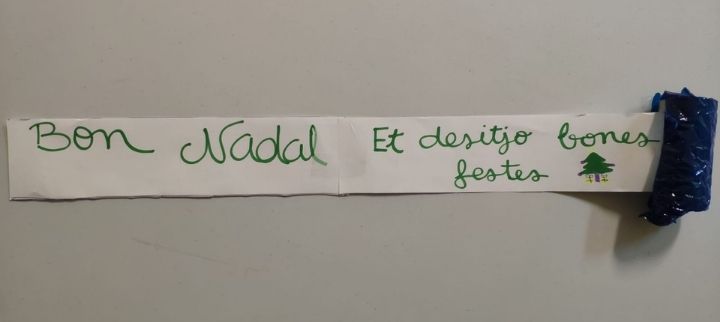 Bon Nadal
Et desitjo bones
festes